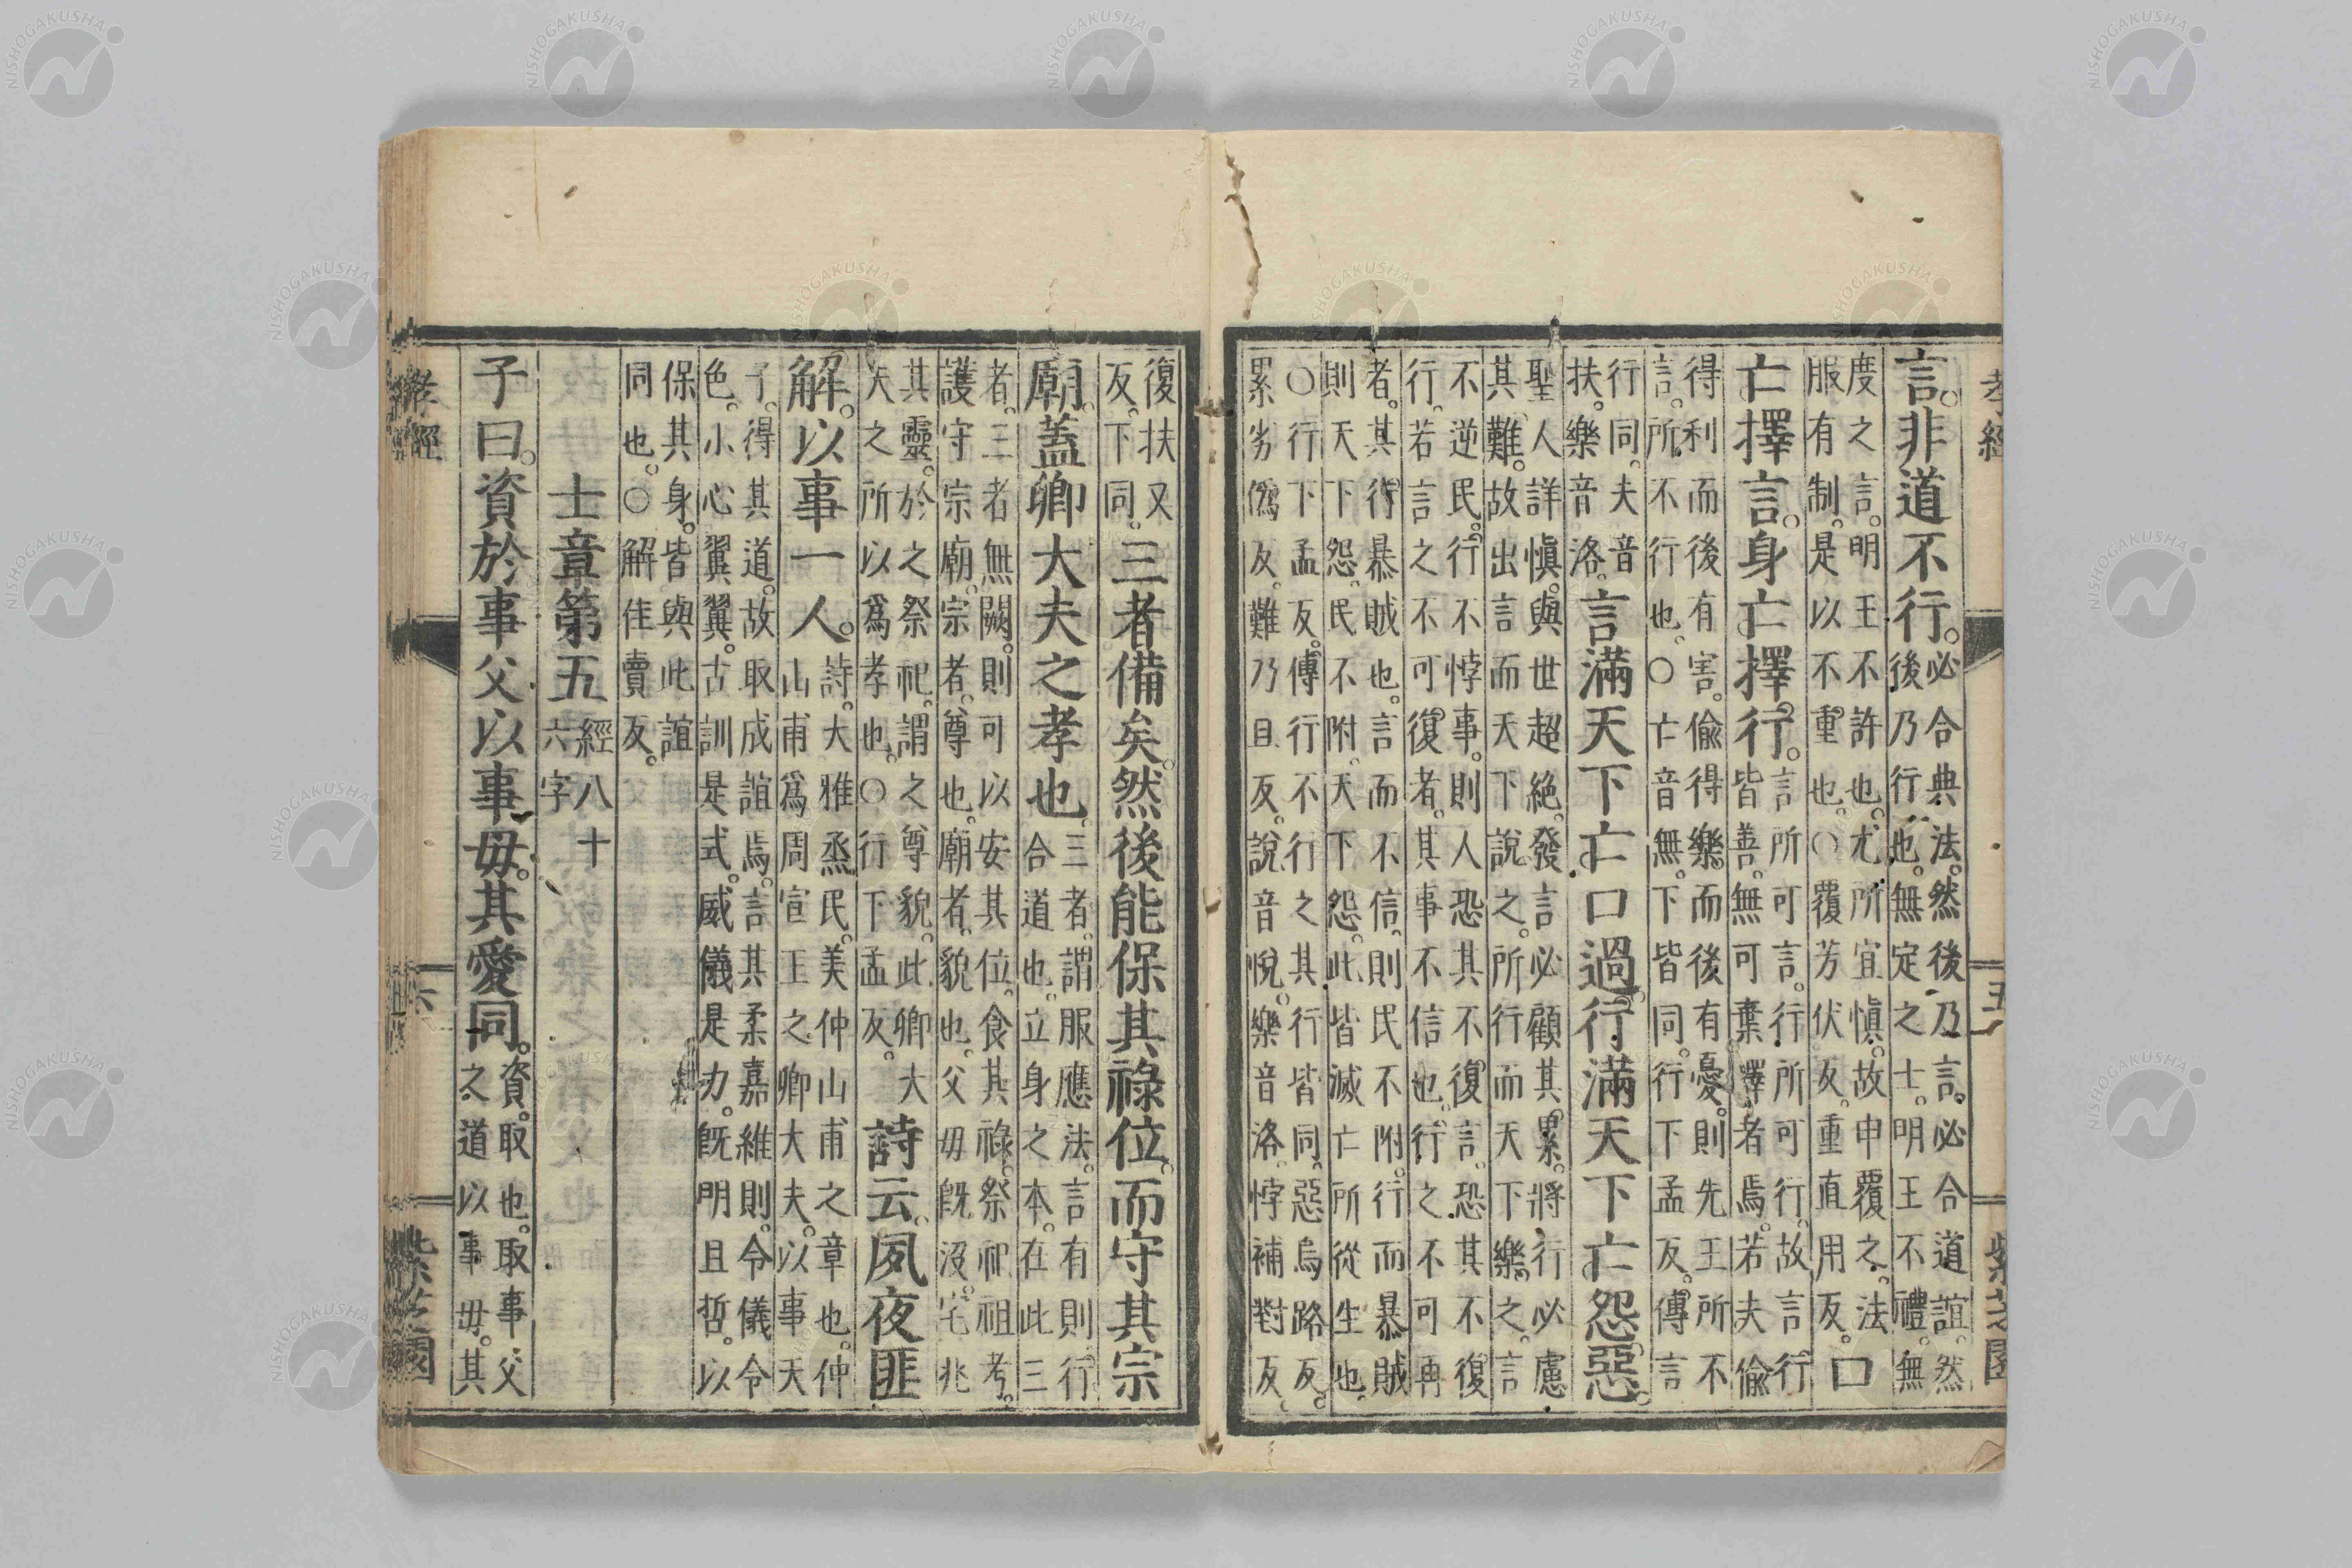 孝經 五 紫芝園
言。非道不行。必合典法。然後乃言。必合道誼。然
後乃行也。無定之士。明王不禮。無
度之言。明王不許也。尤所宜愼。故申覆之。法
服有制。是以不重也。○覆芳伏反。重直用反。口
亡擇言。身亡擇行。言所可言。行所可行。故言行
皆善。無可棄擇者焉。若夫偷
得利而後有害。偷得樂而後有憂。則先王所不
言。所不行也。○亡音無。下皆同。行下孟反。傳言
行同。夫音
扶。樂音洛。言滿天下亡口過。行滿天下亡怨惡。
聖人詳愼。與世超絶。發言必顧其累。將行必慮
其難。故出言而天下說之。所行而天下樂之。言
不逆民。行不悖事。則人恐其不復言。恐其不復
行。若言之不可復者。其事不信也。行之不可再
者。其行暴賊也。言而不信。則民不附。行而暴賊
則天下怨。民不附。天下怨。此皆滅亡所從生也。
○行下孟反。傳行不行之其行皆同。惡烏路反。
累劣僞反。難乃旦反。說音悅。樂音洛。悖補對反。
復扶又
反。下同。三者備矣。然後能保其祿位。而守其宗
廟。蓋卿大夫之孝也。三者。謂服應法。言有則。行
合道也。立身之本。在此三
者。三者無闕。則可以安其位。食其祿。祭祀祖考。
護守宗廟。宗者。尊也。廟者。貌也。父母既沒。宅兆
其靈。於之祭祀。謂之尊貌。此卿大
夫之所以爲孝也。○行下孟反。詩云。夙夜匪
解。以事一人。詩。大雅烝民。美仲山甫之章也。仲
山甫爲周宣王之卿大夫。以事天
子。得其道。故取成誼焉。言其柔嘉維則。令儀令
色。小心翼翼。古訓是式。威儀是力。既明且哲。以
保其身。皆與此誼
同也。○解佳賣反。
士章第五經八十
六字
子曰。資於事父以事母。其愛同。資。取也。取事父
之道以事母。其
孝經 六 紫芝園